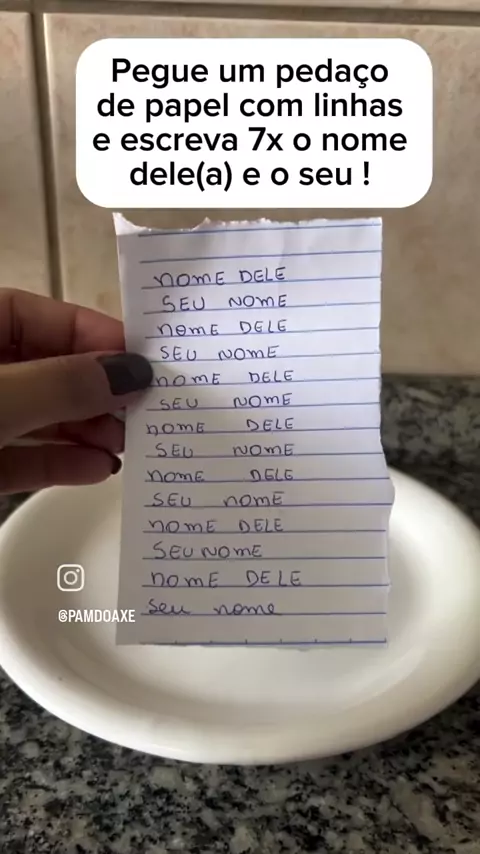 Pegue um pedaço
de papel com linhas
e escreva 7x o nome
dele(a) e o seu !
NOME DELE
SEU NOME
NOME DELE
SEU NOME
NOME DELE
SEU NOME
NOME DELE
SEU NOME
NOME DELE
SEU NOME
NOME DELE
SEU NOME
NOME DELE
seu nome
@PAMDOAXE